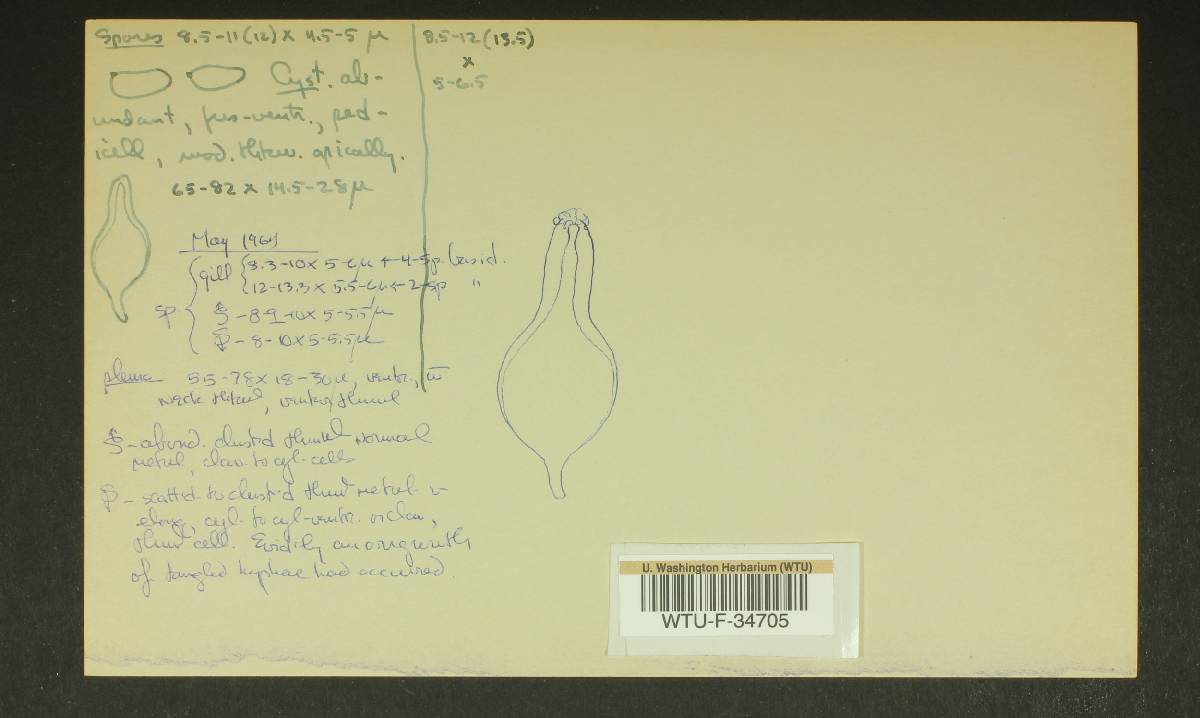 Spores 8.5-11(12) x 4.5-5 μ
Cyst. ab-
undant, fus-ventr., ped-
icell, mod. thkw. apically.
65-82 x 14.5-28μ
8.5-12(13.5)
x
5-6.5
May 1964
sp
gill 8.3-10 x 5-6μ ← 4-sp. basid.
12-13.3 x 5.5-6μ ← 2-sp "
- 8-9-10 x 5-5.5μ
- 8-10 x 5-5.5μ
pleuro 55-78 x 18-30μ, ventr.,
neck thkw, venter thinw
- abund. clust'd thinw normal
clav. to cyl. cells
- scatt'd to clust'd thinw
elong, cyl. to cyl-ventr. or clav,
thinw cell. Evid'ly an overgrowth
of tangled hyphae had occurred.
U. Washington Herbarium (WTU)
WTU-F-34705